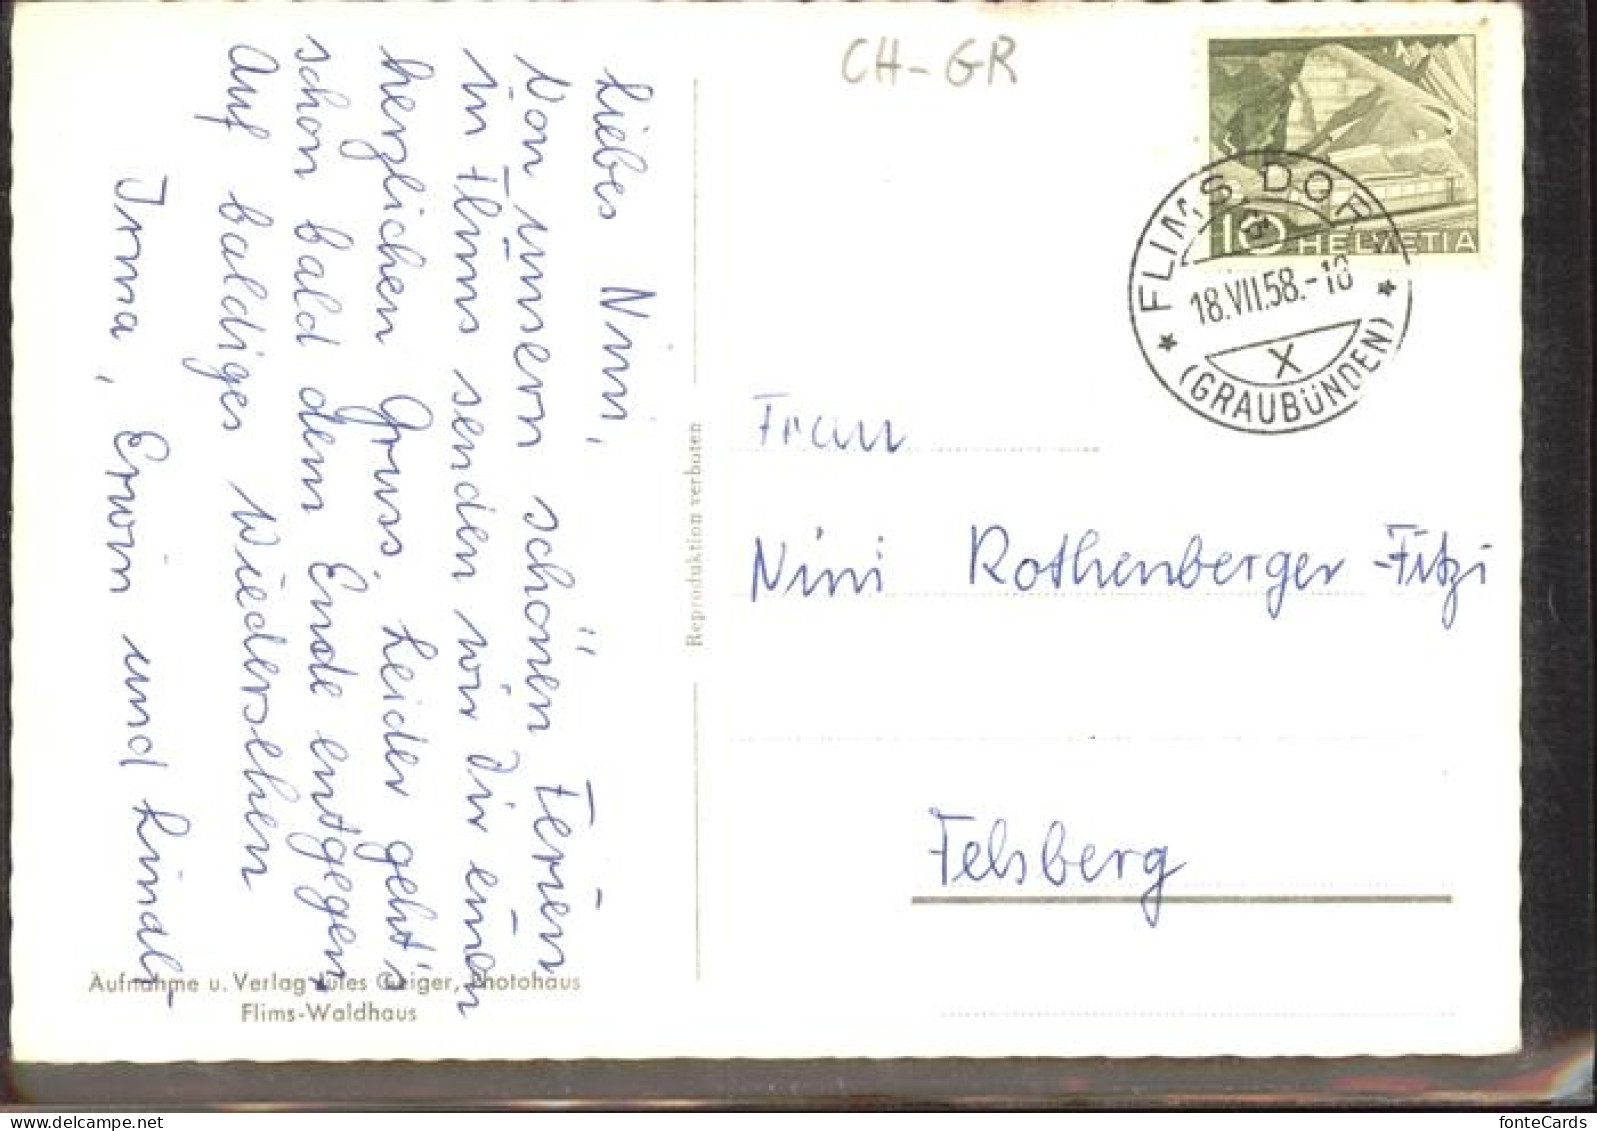 Liebes Nini,
Von unsern schönen Ferien
in Flims senden wir Dir einen
herzlichen Gruss. Leider geht's
schon bald dem Ende entgegen.
Auf baldiges Wiedersehen
Irma, Erwin und
CH-GR
HELVETIA
10
FLIMS DORF
18.VII.58.-18
X
(GRAUBÜNDEN)
Frau
Nini Rothenberger-Fitzi
Felsberg
Reproduktion verboten
Aufnahme u. Verlag Jules Geiger, Photohaus
Flims-Waldhaus
fonteCards